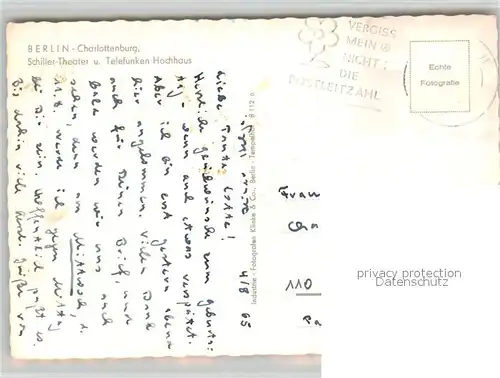 BERLIN - Charlottenburg,
Schiller-Theater u. Telefunken-Hochhaus
VERGISS
MEIN
NICHT:
DIE
POSTLEITZAHL
Echte
Fotografie
Industrie-Fotografen Klinke & Co., Berlin-Tempelhof
4/8 65
Liebe Tante Lotte!
Herzliche Geburts-
tag, wenn auch etwas verspätet.
Aber ich bin erst gestern abend
hier angekommen. Vielen Dank
auch für Deinen Brief, und
bald werden wir uns auch
sehen, denn am Mittwoch, d.
11.8. werde ich gegen Mittag
bei Dir sein. Hoffentlich paßt es.
Bis dahin viele Grüße von
Frau
110
privacy protection
www.ansichtskarten-center.de